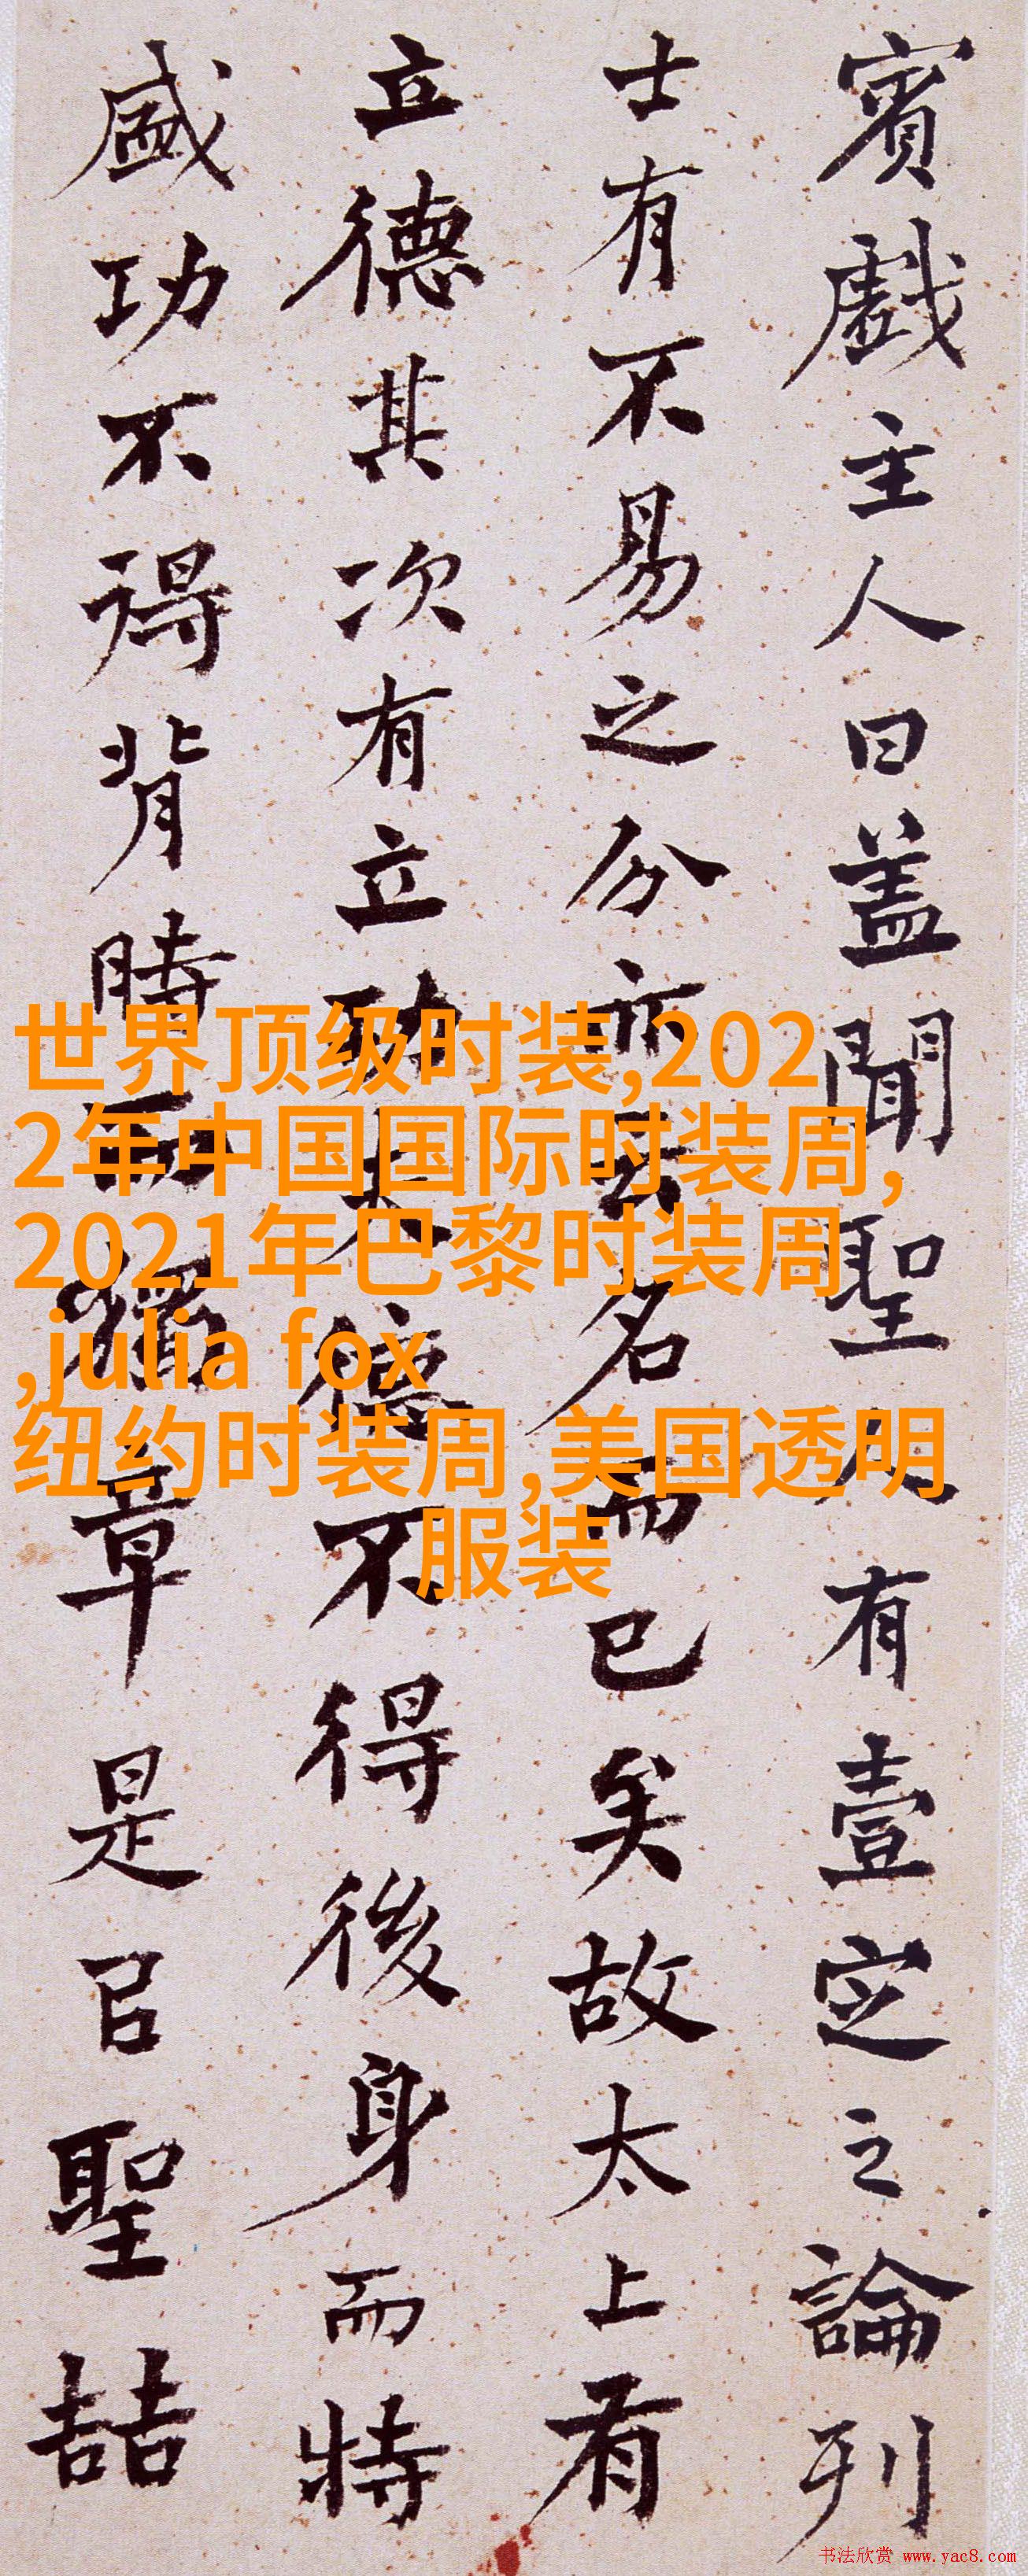 賓戲主人曰蓋聞聖人有壹定之論列
士有不易之分亦云名而已矣故太上有
立德其次有立功夫德不得後身而特
盛功不得背時而獨章是以聖喆
世界顶级时装,202
2年中国国际时装周,
2021年巴黎时装周
,julia fox
纽约时装周,美国透明
服装
书法欣赏 www.yac8.com